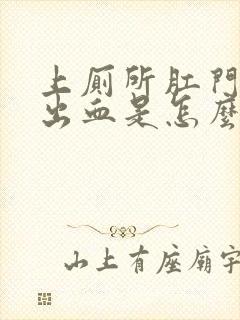 上厠所肛門
出血是怎麼
山上有座廟宇